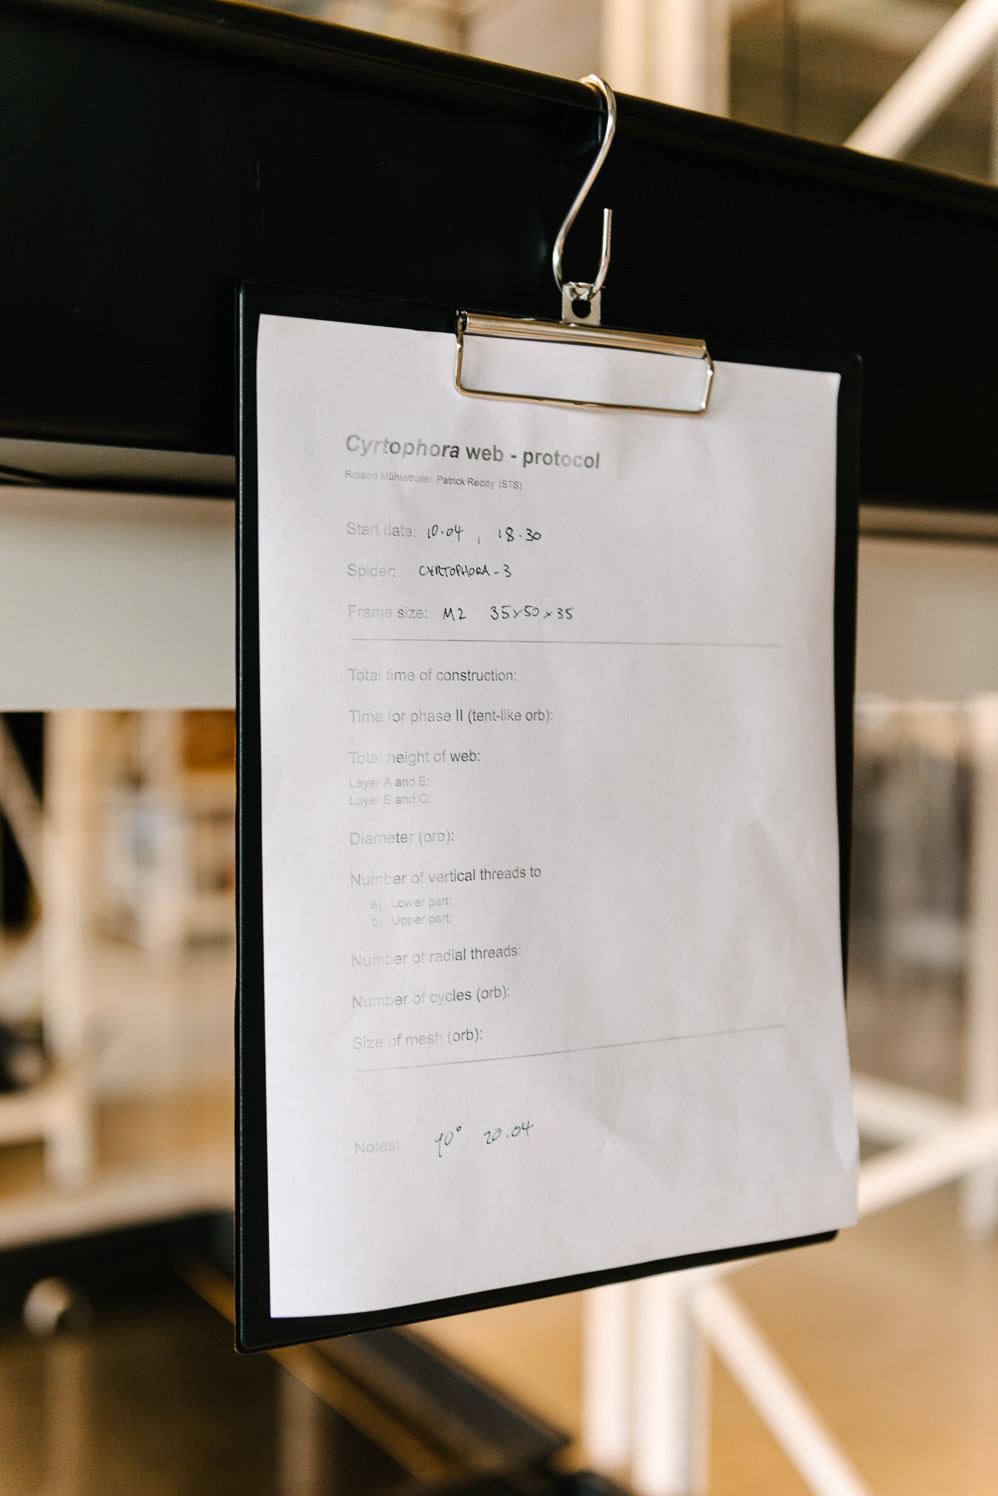 Cyrtophora web - protocol
Roland Mühlethaler, Patrick Reddy (STS)
Start date: 10.04 , 18.30
Spider: CYRTOPHORA - 3
Frame size: M2 35x50x35
Total time of construction:
Time for phase II (tent-like orb):
Total height of web:
Layer A and E:
Layer B and C:
Diameter (orb):
Number of vertical threads to
a) Lower part:
b) Upper part:
Number of radial threads:
Number of cycles (orb):
Size of mesh (orb):
Notes: 90° 20.04